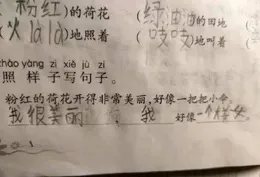 粉红)的荷花 (绿油油的田地
火lālā)地照着 (吱吱)地叫着 (
zhào yàng zi xiě jù zi
照 样 子 写 句 子。
粉红的荷花开得非常美丽,好像一把把小伞。
我很美丽 我 好像一个